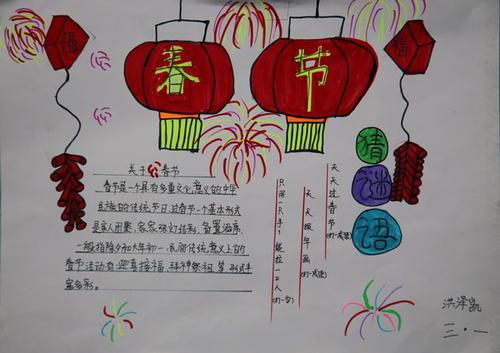 福
春
节
福
关于春节
春节是一个具有多重文化意义的中华
民族的传统节日.过春节一个基本形式
是家人团聚、家家张灯结彩、备置酒席.
一般指除夕和大年初一.民间传统意义上的
春节活动有:迎喜接福、拜神祭祖等形式丰
富多彩。
只用一只手,能拉一口人(打一字)
天天年画(打一成语)
天天过春节(打一成语)
猜
谜
语
洪泽凯
三·一